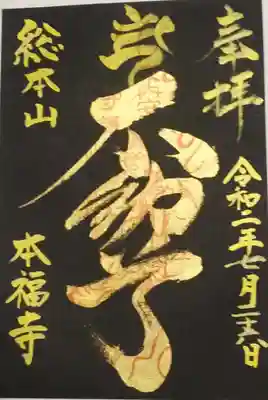 奉拝
令和二年七月二六日
不動
総本山
本福寺